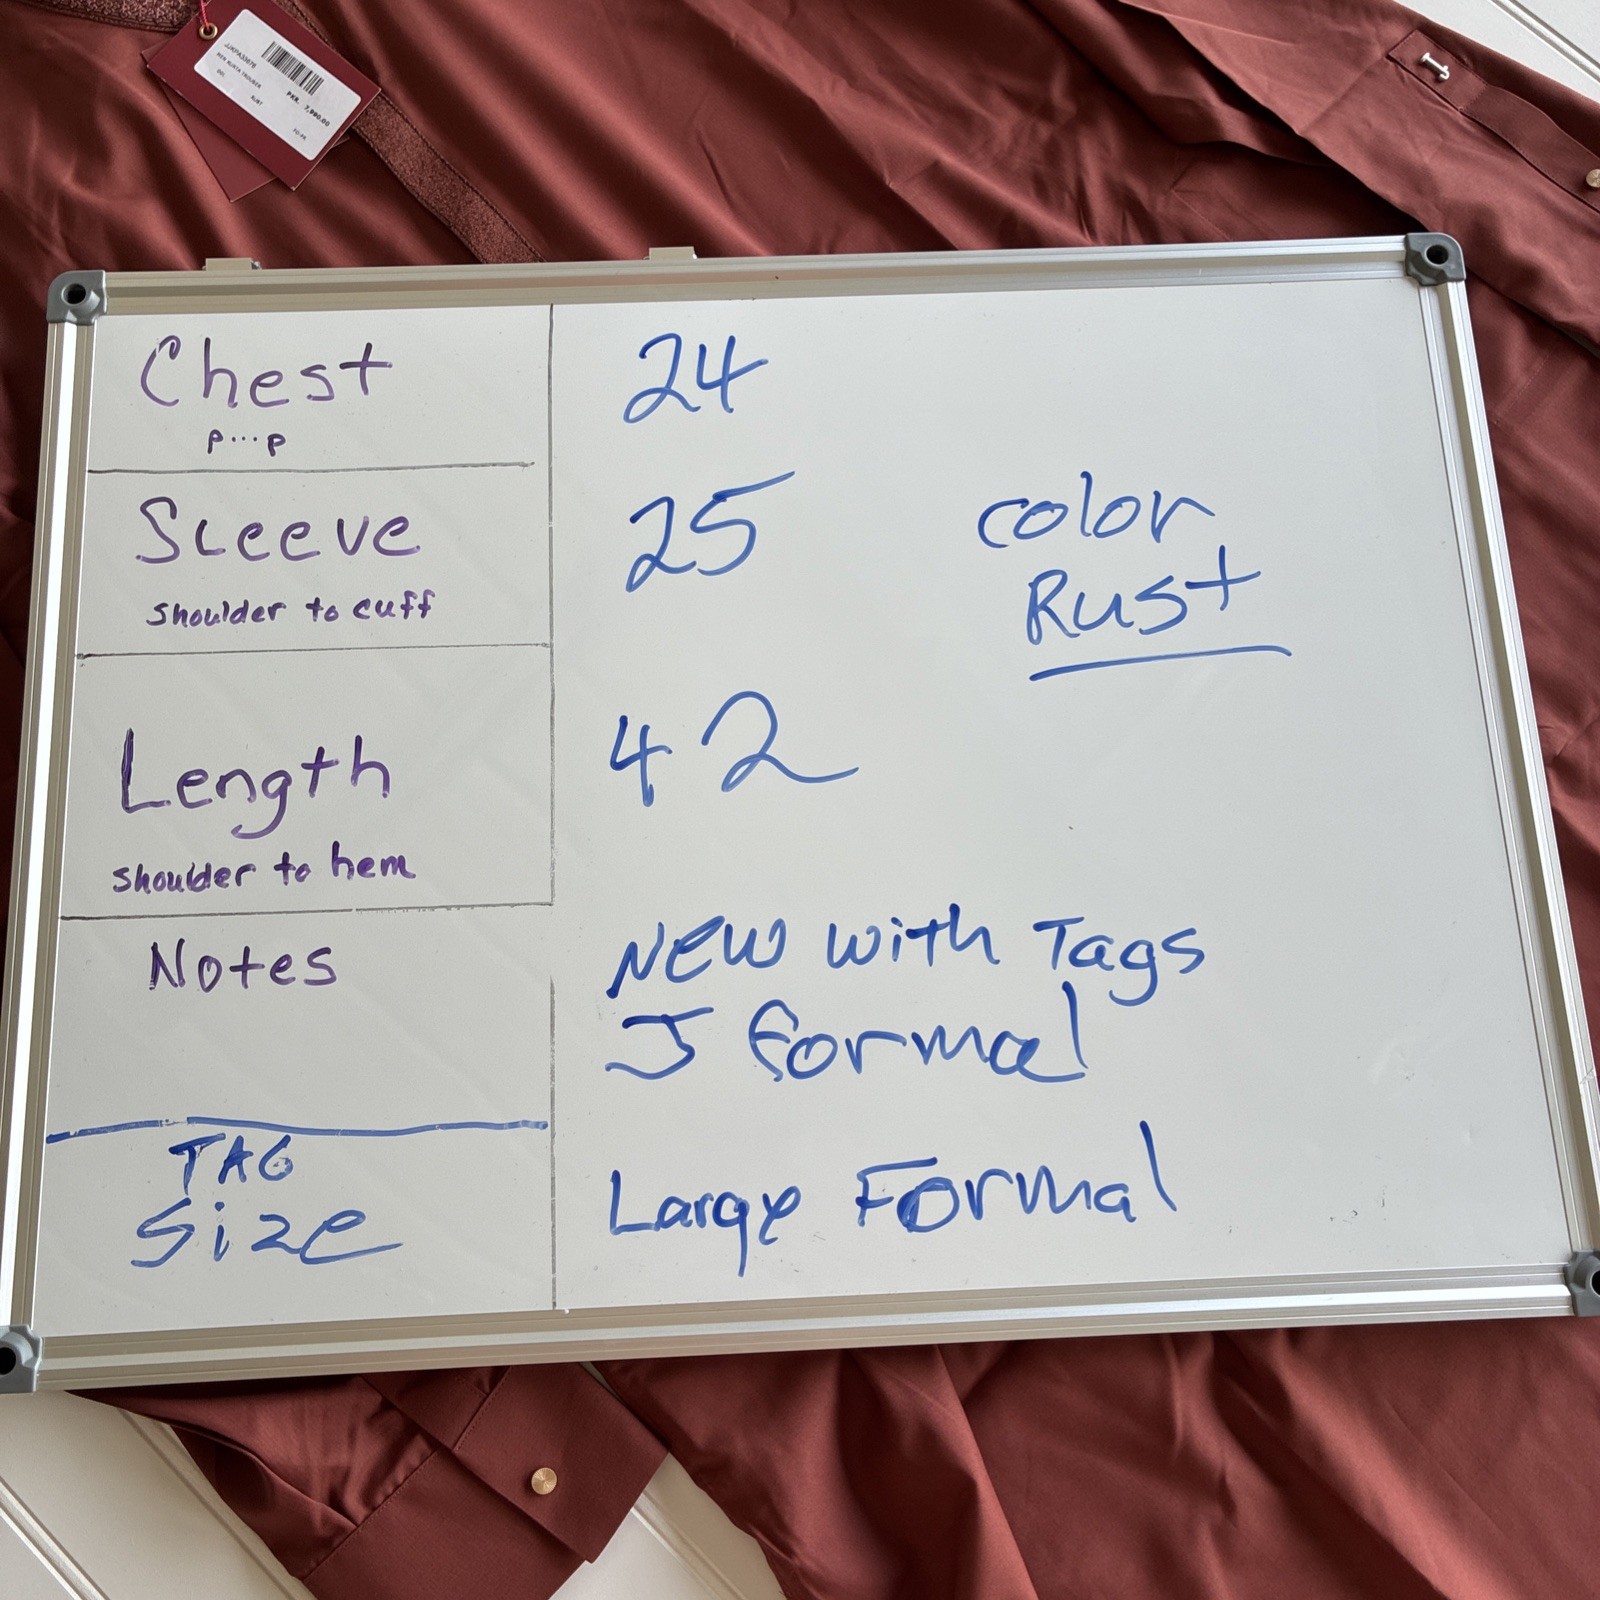 JJKPA33678
MEN KURTA TROUSER
RUST
PKR. 7,990.00
Chest
P...P
24
Sleeve
shoulder to cuff
25
color
Rust
Length
shoulder to hem
42
Notes
New with Tags
J formal
TAG
Size
Large Formal